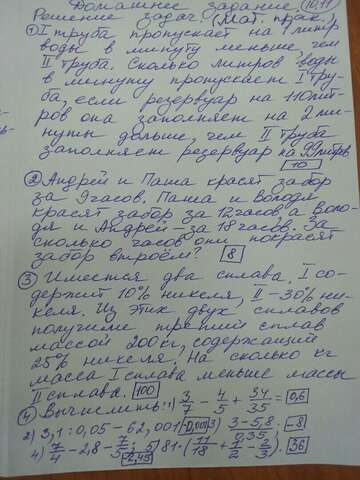 Домашнее задание (10.11)
Решение задач. (Мат. прак.)
① I труба пропускает на 1 литр
воды в минуту меньше, чем
II труба. Сколько литров воды
в минуту пропускает I тру-
ба, если резервуар на 110 лит-
ров она заполняет на 2 ми-
нуты дольше, чем II труба
заполняет резервуар на 99 литров
10
② Андрей и Паша красят забор
за 9 часов. Паша и Володя
красят забор за 12 часов, а Воло-
дя и Андрей – за 18 часов. За
сколько часов они покрасят
забор втроём? 8
③ Имеется два сплава. I со-
держит 10% никеля, II – 30% ни-
келя. Из этих двух сплавов
получили третий сплав
массой 200 кг, содержащий
25% никеля. На сколько кг
масса I сплава меньше массы
II сплава. 100
④ Вычислить: 1) 3/7 – 4/5 + 34/35 = 0,6
2) 3,1 : 0,05 – 62,001 = -0,001 3) 3 – 5,8 / 0,35 = -8
4) 7/4 – 2,8 – 7/5 = -2,45 5) 81·(11/18 + 1/2 – 2/3) = 36